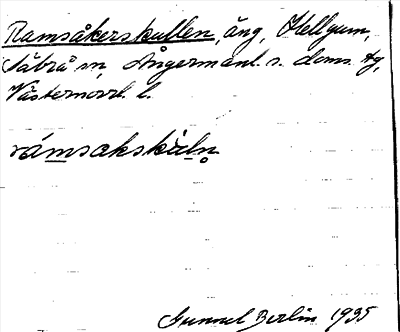 Ramsåkerskullen, äng, Hellgum,
Säbrå sn, Ångermanl. s. doms. hg,
Västernorrl. l.
rámsakskùln
Gunnel Berlin 1935